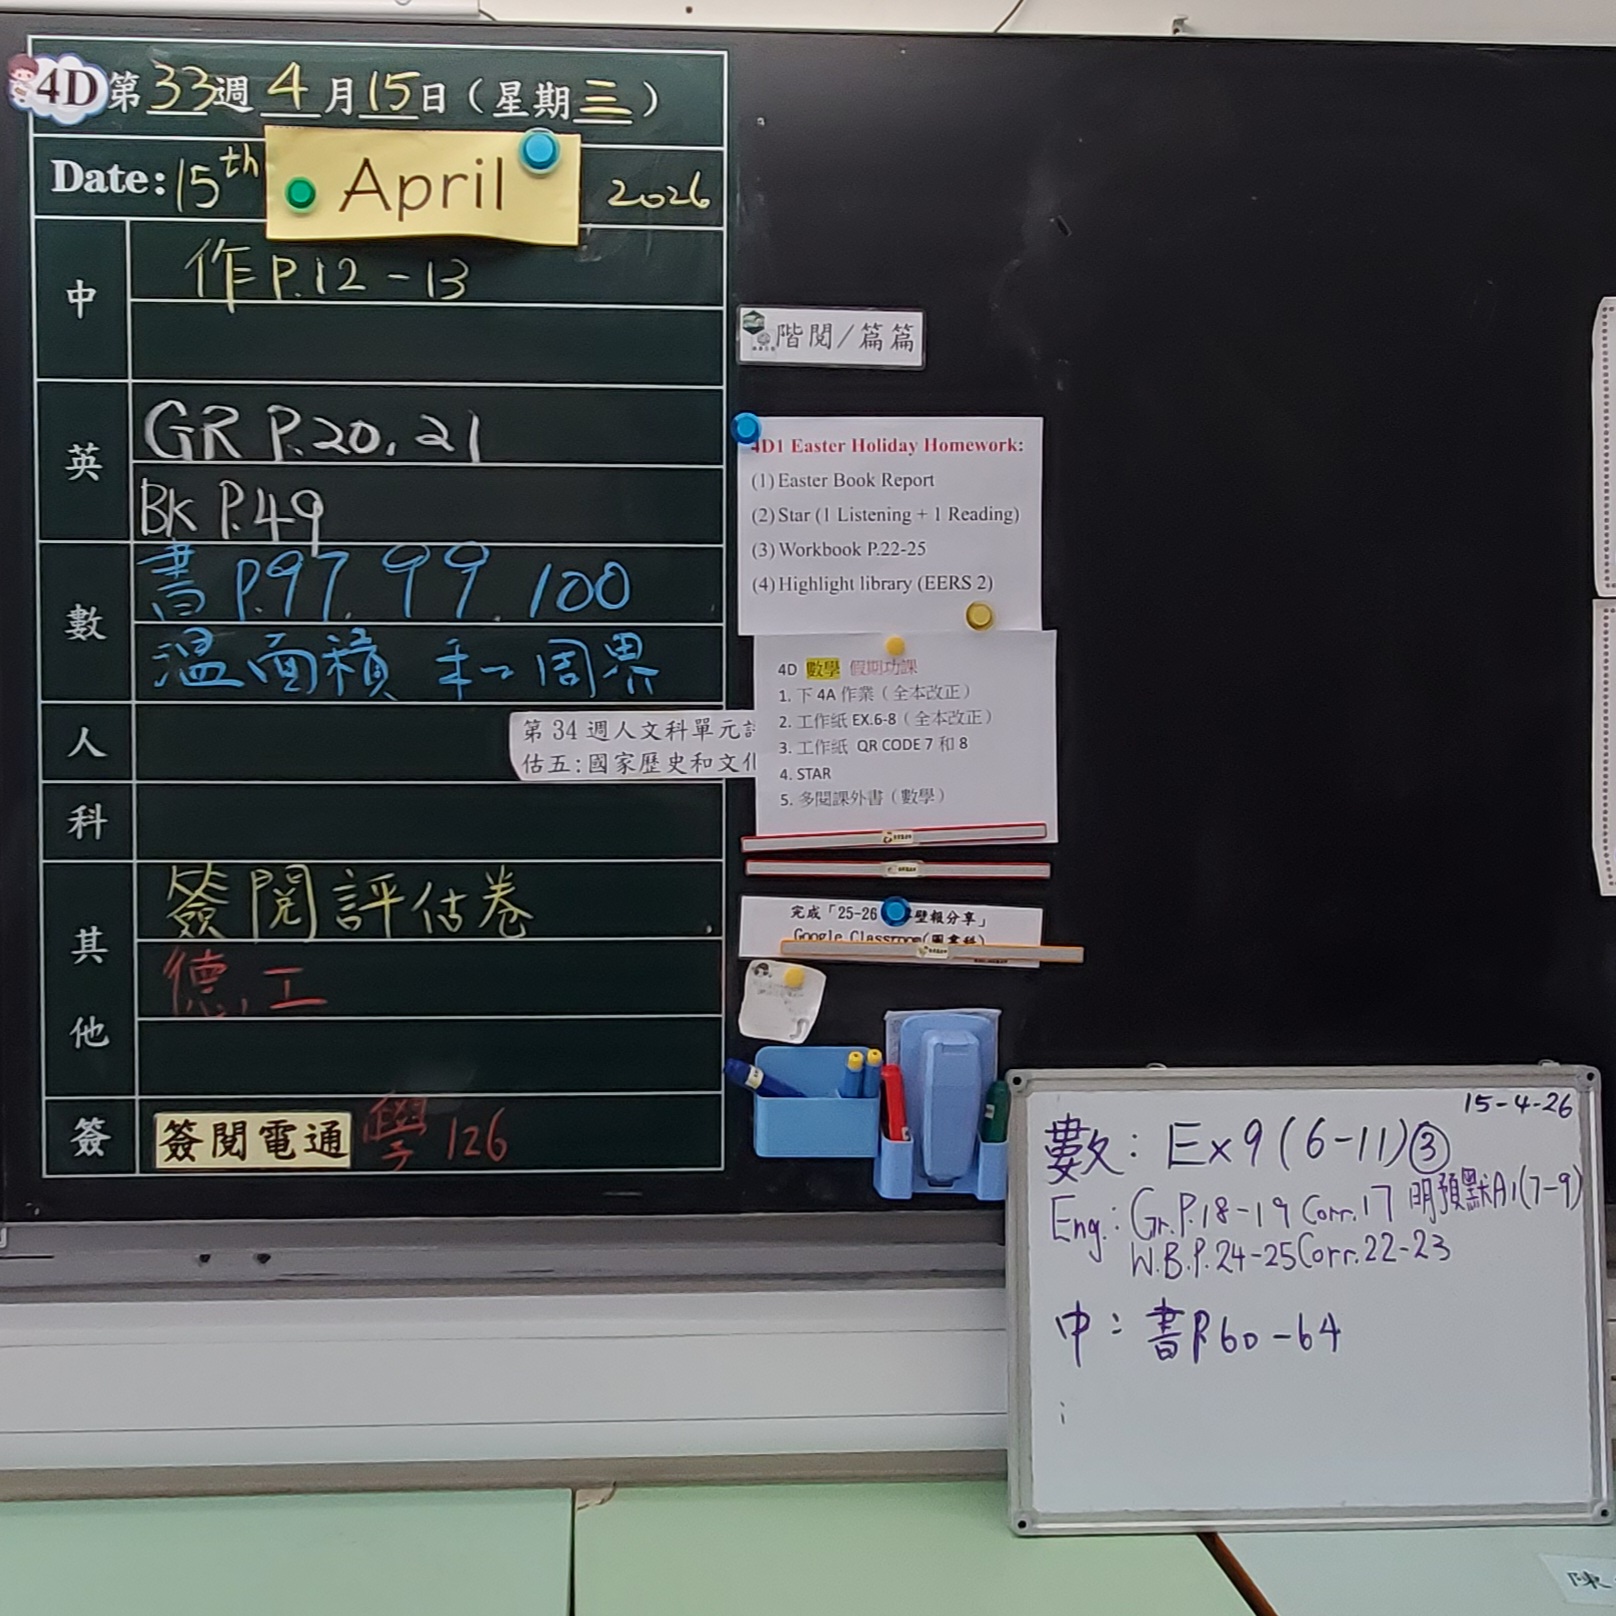 4D 第33週 4月15日(星期三)
Date: 15th April 2026
中 作P.12-13
英 GR P.20, 21
BK P.49
數 書 P.97, 99, 100
溫面積和周界
人
第34週人文科單元
估五:國家歷史和文
科
其他 簽閱評估卷
德,工
簽 簽閱電通 學126
階閱/篇篇
4D1 Easter Holiday Homework:
(1) Easter Book Report
(2) Star (1 Listening + 1 Reading)
(3) Workbook P.22-25
(4) Highlight library (EERS 2)
4D 數學 假期功課
1. 下4A作業(全本改正)
2. 工作紙 EX.6-8(全本改正)
3. 工作紙 QR CODE 7 和 8
4. STAR
5. 多閱課外書(數學)
完成「25-26 壁報分享」
Google Classroom(圖書科)
15-4-26
數: Ex 9 (6-11) ③
Eng.: Gr.P.18-19 Corr.17 明預默A1(7-9)
W.B.P.24-25 Corr.22-23
中: 書P.60-64
陳